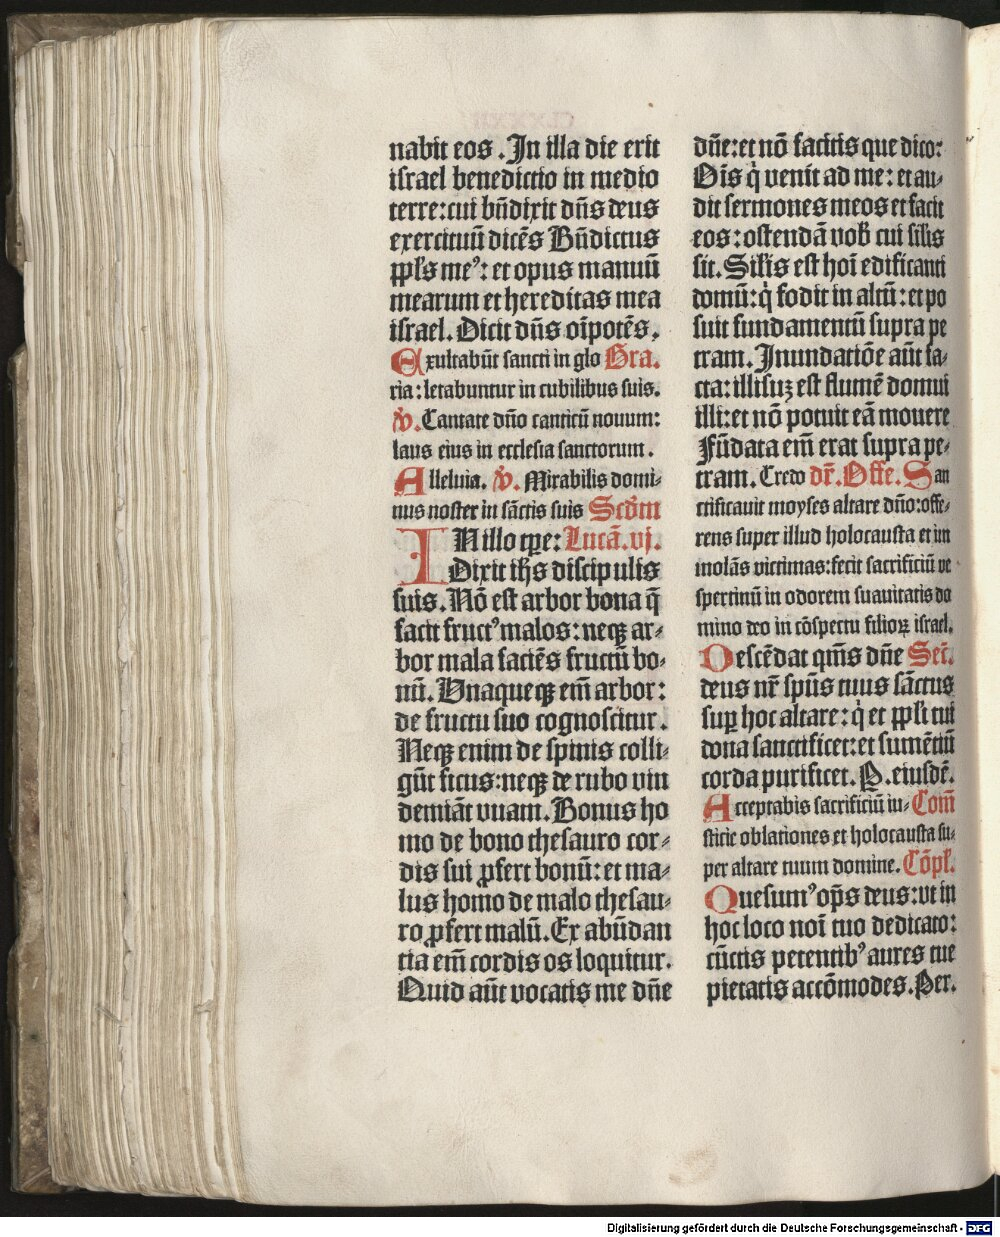 nabit eos. In illa die erit
israel benedictio in medio
terre: cui bn̄dixit dn̄s deus
exercituū dicēs Bn̄dictus
ppl's me⁹: et opus manuū
mearum et hereditas mea
israel. Dicit dn̄s oīpotēs.
Exultabūt sancti in glo Gra.
ria: letabuntur in cubilibus suis.
v̊. Cantate dn̄o canticū nouum:
laus eius in ecclesia sanctorum.
Alleluia. v̊. Mirabilis domi⸗
nus noster in sāctis suis Scdm̄
IN illo tp̄e: Lucā. vj.
Dixit ihs̄ discipulis
suis. Nō est arbor bona q̄
facit fruct⁹ malos: neqꝫ ar⸗
bor mala faciēs fructū bo⸗
nū. Vnaqueqꝫ em̄ arbor:
de fructu suo cognoscitur.
Neqꝫ enim de spinis colli⸗
gūt ficus: neqꝫ de rubo vin
demiāt vuam. Bonus ho
mo de bono thesauro cor⸗
dis sui ꝓfert bonū: et ma⸗
lus homo de malo thesau⸗
ro ꝓfert malū. Ex abūdan
tia em̄ cordis os loquitur.
Quid aūt vocatis me dn̄e
dn̄e: et nō facitis que dico:
Oīs q̇ venit ad me: et au⸗
dit sermones meos et facit
eos: ostendā vob̄ cui silis
sit. Silis est hoī edificanti
domū: q̇ fodit in altū: et po
suit fundamentū supra pe
tram. Inundatiōe aūt fa⸗
cta: illisuꝫ est flumē domui
illi: et nō potuit eā mouere
Fūdata em̄ erat supra pe⸗
tram. Credo dr̄. Offe. San
ctificauit moyses altare dn̄o: offe⸗
rens super illud holocausta et im
molās victimas: fecit sacrificiū ve
spertinū in odorem suauitatis do
mino deo in cōspectu filioꝝ israel.
Descēdat qm̄s dn̄e Secr̄.
deus nr̄ spūs tuus sāctus
suꝑ hoc altare: q̇ et ppl'i tui
dona sanctificet: et sumētiū
corda purificet. P. eiusdē.
Acceptabis sacrificiū iu⸗ Com̄
sticie oblationes et holocausta su⸗
per altare tuum domine. Cōpl'.
Quesum⁹ op̄s deus: vt in
hoc loco noī tuo dedicato:
cūctis petentib⁹ aures tue
pietatis accōmodes. Per.
Digitalisierung gefördert durch die Deutsche Forschungsgemeinschaft - DFG